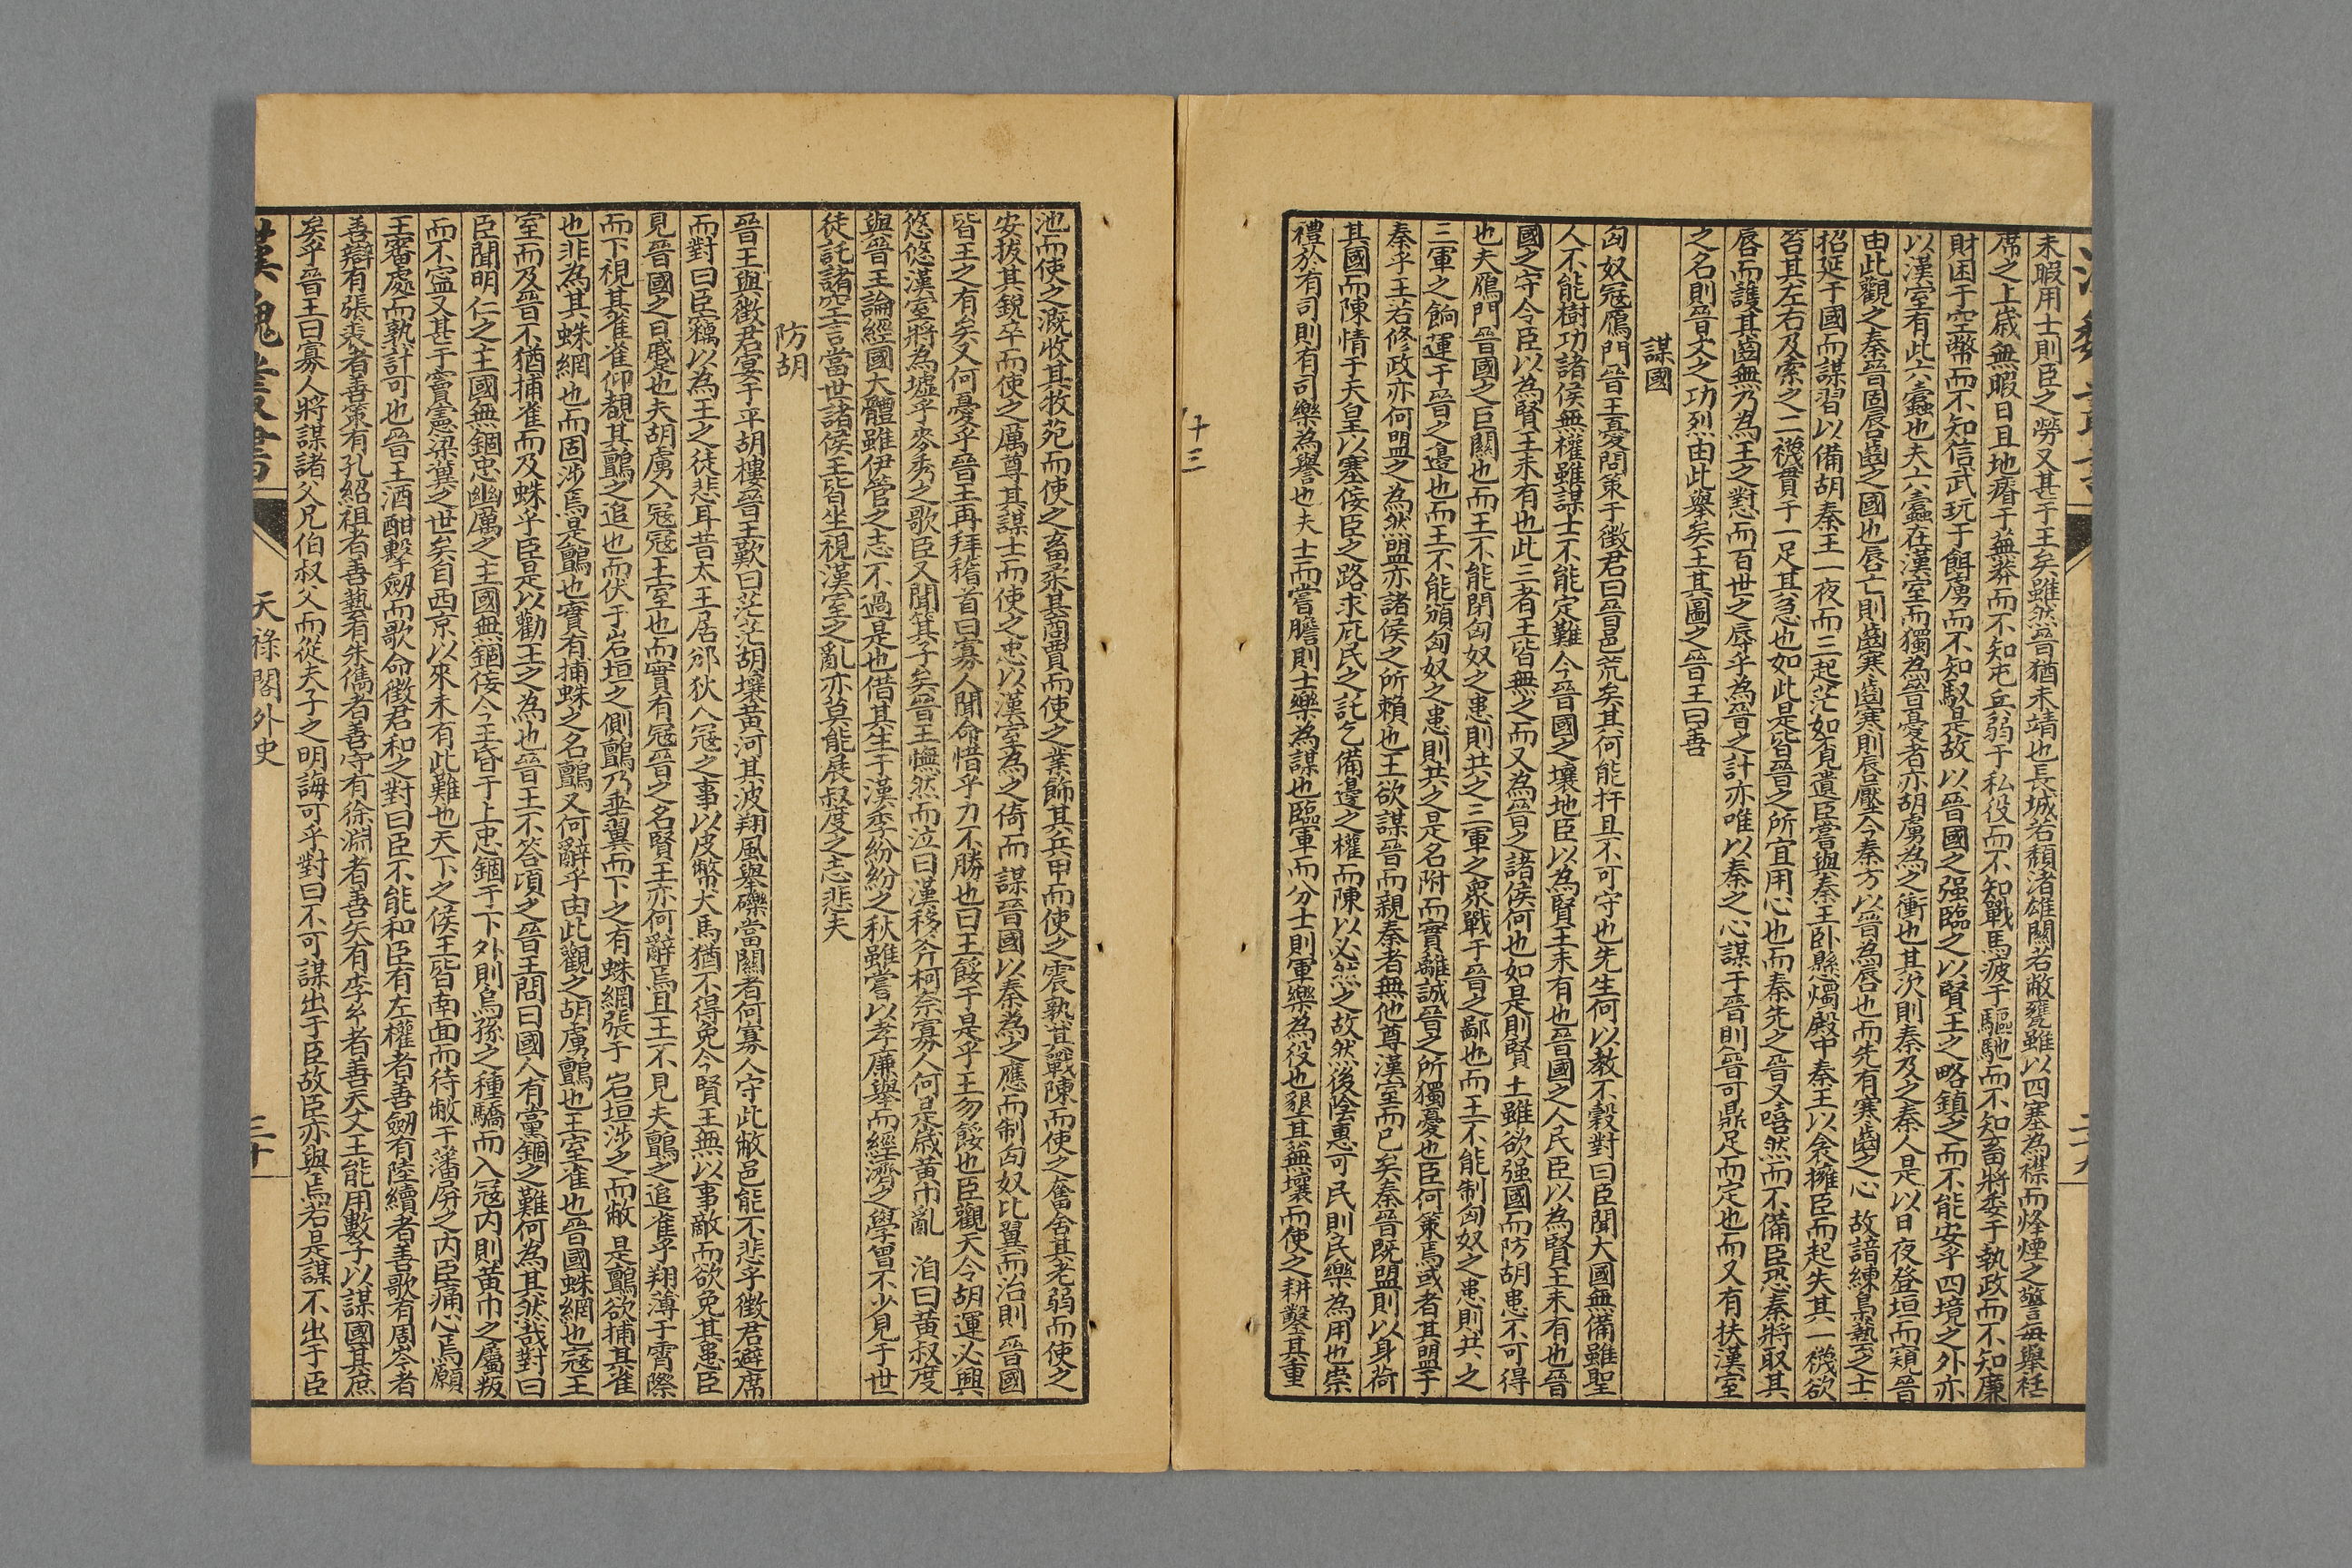 未暇用士則臣之勞又甚于王矣雖然晉猶未靖也長城若頹渚雄關若敝甕雖以四塞為襟而烽煙之警每舉衽
席之上歲無暇日且地瘠于蕪莽而不知屯兵弱于私役而不知戰馬疲于驅馳而不知畜將委于執政而不知廉
財困于空幣而不知信武玩于餌虜而不知馭是故以晉國之强臨之以賢王之略鎮之而不能安乎四境之外亦
以漢室有此六蠹也夫六蠹在漢室而獨為晉憂者亦胡虜為之衝也其次則秦及之秦人是以日夜登垣而窺晉
由此觀之秦晉固唇齒之國也唇亡則齒寒齒寒則唇壓今秦方以晉為唇也而先有寒齒之心故諳練梟藝之士
招延于國而謀習以備胡秦王一夜而三起茫如有遺臣嘗與秦王卧懸燭殿中秦王以衾擁臣而起失其一襪欲
笞其左右及索之二襪貫于一足其急也如此是皆晉之所宜用心也而秦先之晉又嘻然而不備臣恐秦將取其
唇而護其齒無乃為王之懟而百世之辱乎為晉之計亦唯以秦之心謀于晉則晉可鼎足而定也而又有扶漢室
之名則晉文之功烈由此舉矣王其圖之晉王曰善
謀國
匈奴寇鴈門晉王憂問策于徵君曰晉邑荒矣其何能扞且不可守也先生何以教不穀對曰臣聞大國無備雖聖
人不能樹功諸侯無權雖謀士不能定難今晉國之壤地臣以為賢王未有也晉國之人民臣以為賢王未有也晉
國之守令臣以為賢王未有也此三者王皆無之而又為晉之諸侯何也如是則賢士雖欲强國而防胡患不可得
也夫鴈門晉國之巨關也而王不能閉匈奴之患則共之三軍之衆戰于晉之鄙也而王不能制匈奴之患則共之
三軍之餉運于晉之邊也而王不能頒匈奴之患則共之是名附而實離誠晉之所獨憂也臣何策焉或者其盟于
秦乎王若修政亦何盟之為然盟亦諸侯之所賴也王欲謀晉而親秦者無他尊漢室而已矣秦晉既盟則以身荷
其國而陳情于天皇以塞佞臣之路求庇民之託乞備邊之權而陳以必然之故然後陰惠可民則民樂為用也崇
禮於有司則有司樂為譽也夫士而嘗膽則士樂為謀也臨軍而分士則軍樂為役也墾其蕪壤而使之耕鑿其重
十三
池而使之溉收其牧苑而使之畜柔其商賈而使之業飾其兵甲而使之震執其戰陳而使之奮舍其老弱而使之
安拔其銳卒而使之厲尊其謀士而使之忠以漢室為之倚而謀晉國以秦為之應而制匈奴比翼而治則晉國
皆王之有矣又何憂乎晉王再拜稽首曰寡人聞命惜乎力不勝也曰王餒于是乎王勿餒也臣觀天今胡運必興
悠悠漢室將為墟乎麥秀之歌臣又聞箕子矣晉王憮然而泣曰漢移斧柯奈寡人何是歲黃巾亂 洎曰黃叔度
與晉王論經國大體雖伊管之志不過是也借其生于漢季紛紛之秋雖嘗以孝廉舉而經濟之學曾不少見于世
徒託諸空言當世諸侯王皆坐視漢室之亂亦莫能展叔度之志悲夫
防胡
晉王與徵君宴于平胡樓晉王歎曰茫茫胡壤黃河其波翔風舉礫當關者何寡人守此敝邑能不悲乎徵君避席
而對曰臣竊以為王之徒悲耳昔太王居邠狄人寇之事以皮幣犬馬猶不得免今賢王無以事敵而欲免其患臣
見晉國之日蹙也夫胡虜入寇寇王室也而實有寇晉之名賢王亦何辭焉且王不見夫鸇之追雀乎翔薄于霄際
而下視其雀雀仰覩其鸇之追也而伏于岩垣之側鸇乃垂翼而下之有蛛網張于岩垣涉之而敝是鸇欲捕其雀
也非為其蛛網也而固涉焉是鸇也實有捕蛛之名鸇又何辭乎由此觀之胡虜鸇也王室雀也晉國蛛網也寇王
室而及晉不猶捕雀而及蛛乎臣是以勸王之為也晉王不答頃之晉王問曰國人有黨錮之難何為其然哉對曰
臣聞明仁之王國無錮忠幽厲之主國無錮佞今王昏于上忠錮于下外則烏孫之種驕而入寇内則黃巾之屬叛
而不寍又甚于竇憲梁冀之世矣自西京以來未有此難也天下之侯王皆南面而待敝于藩屏之内臣痛心焉願
王審處而孰計可也晉王酒酣擊劒而歌命徵君和之對曰臣不能和臣有左權者善劒有陸續者善歌有周岑者
善辯有張裘者善策有孔紹祖者善藝有朱儁者善守有徐淵者善矢有李乡者善天文王能用數子以謀國其庶
矣乎晉王曰寡人將謀諸父兄伯叔父而從夫子之明誨可乎對曰不可謀出于臣故臣亦與焉若是謀不出于臣
漢魏叢書 天祿閣外史 三十